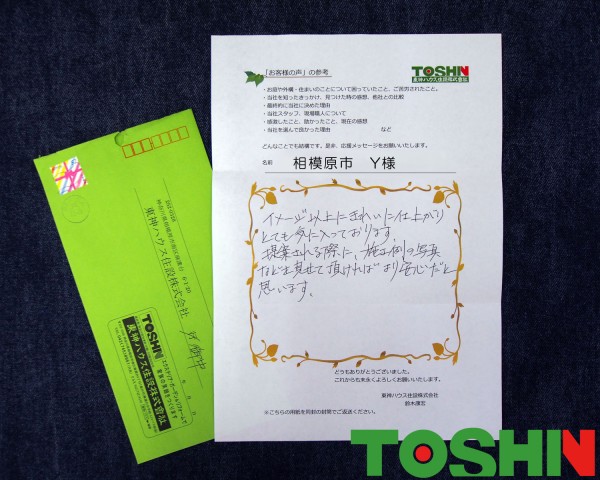 「お客様の声」の参考
TOSHIN
東神ハウス住設株式会社
・お庭や外構・住まいのことについて困っていたこと、ご苦労されたこと。
・当社を知ったきっかけ、見つけた時の感想、他社との比較
・最終的に当社に決めた理由
・当社スタッフ、現場職人について
・感激したこと、助かったこと、現在の感想
・当社を選んで良かった理由　　　など
どんなことでも結構です。是非、応援メッセージをお願いいたします。
名前　相模原市　Y様
イメージ以上にきれいに仕上がり
とても気に入っております。
提案される際に、施工例の写真
なども見せて頂ければより安心だと
思います。
どうもありがとうございました。
これからも末永くよろしくお願いいたします。
東神ハウス住設株式会社
鈴木康宏
※こちらの用紙を同封の封筒でご返送ください。
東神ハウス住設株式会社
御中
TOSHIN
東神ハウス住設株式会社
TOSHIN